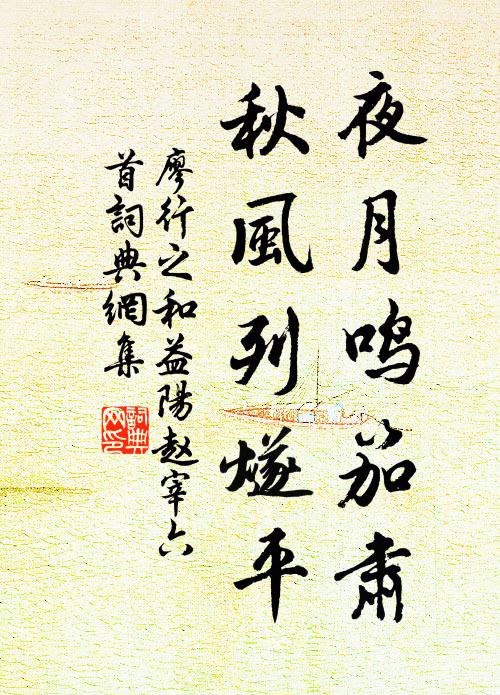 夜月鳴笳肅
秋風列燧平
廖行之和益陽赵宰六
首詞典網集
詞典
网印